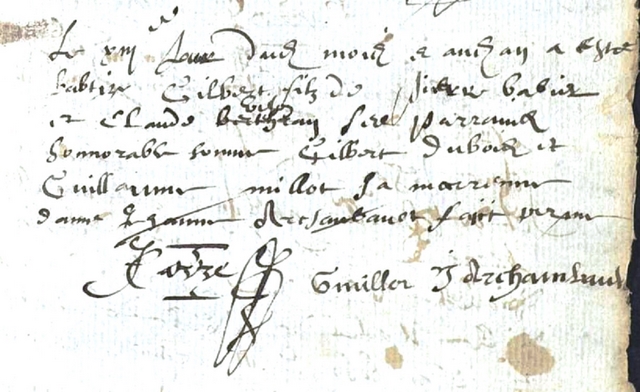 Le xiii Jour dud mois et and an a este
baptize Gilbert filz de pierre babut
et Claude ses parrains
honnorable homme Gilbert Dubois et
Guillaume millot Sa marrenne
dame Jehanne Archambault faict
G millot J Archambault